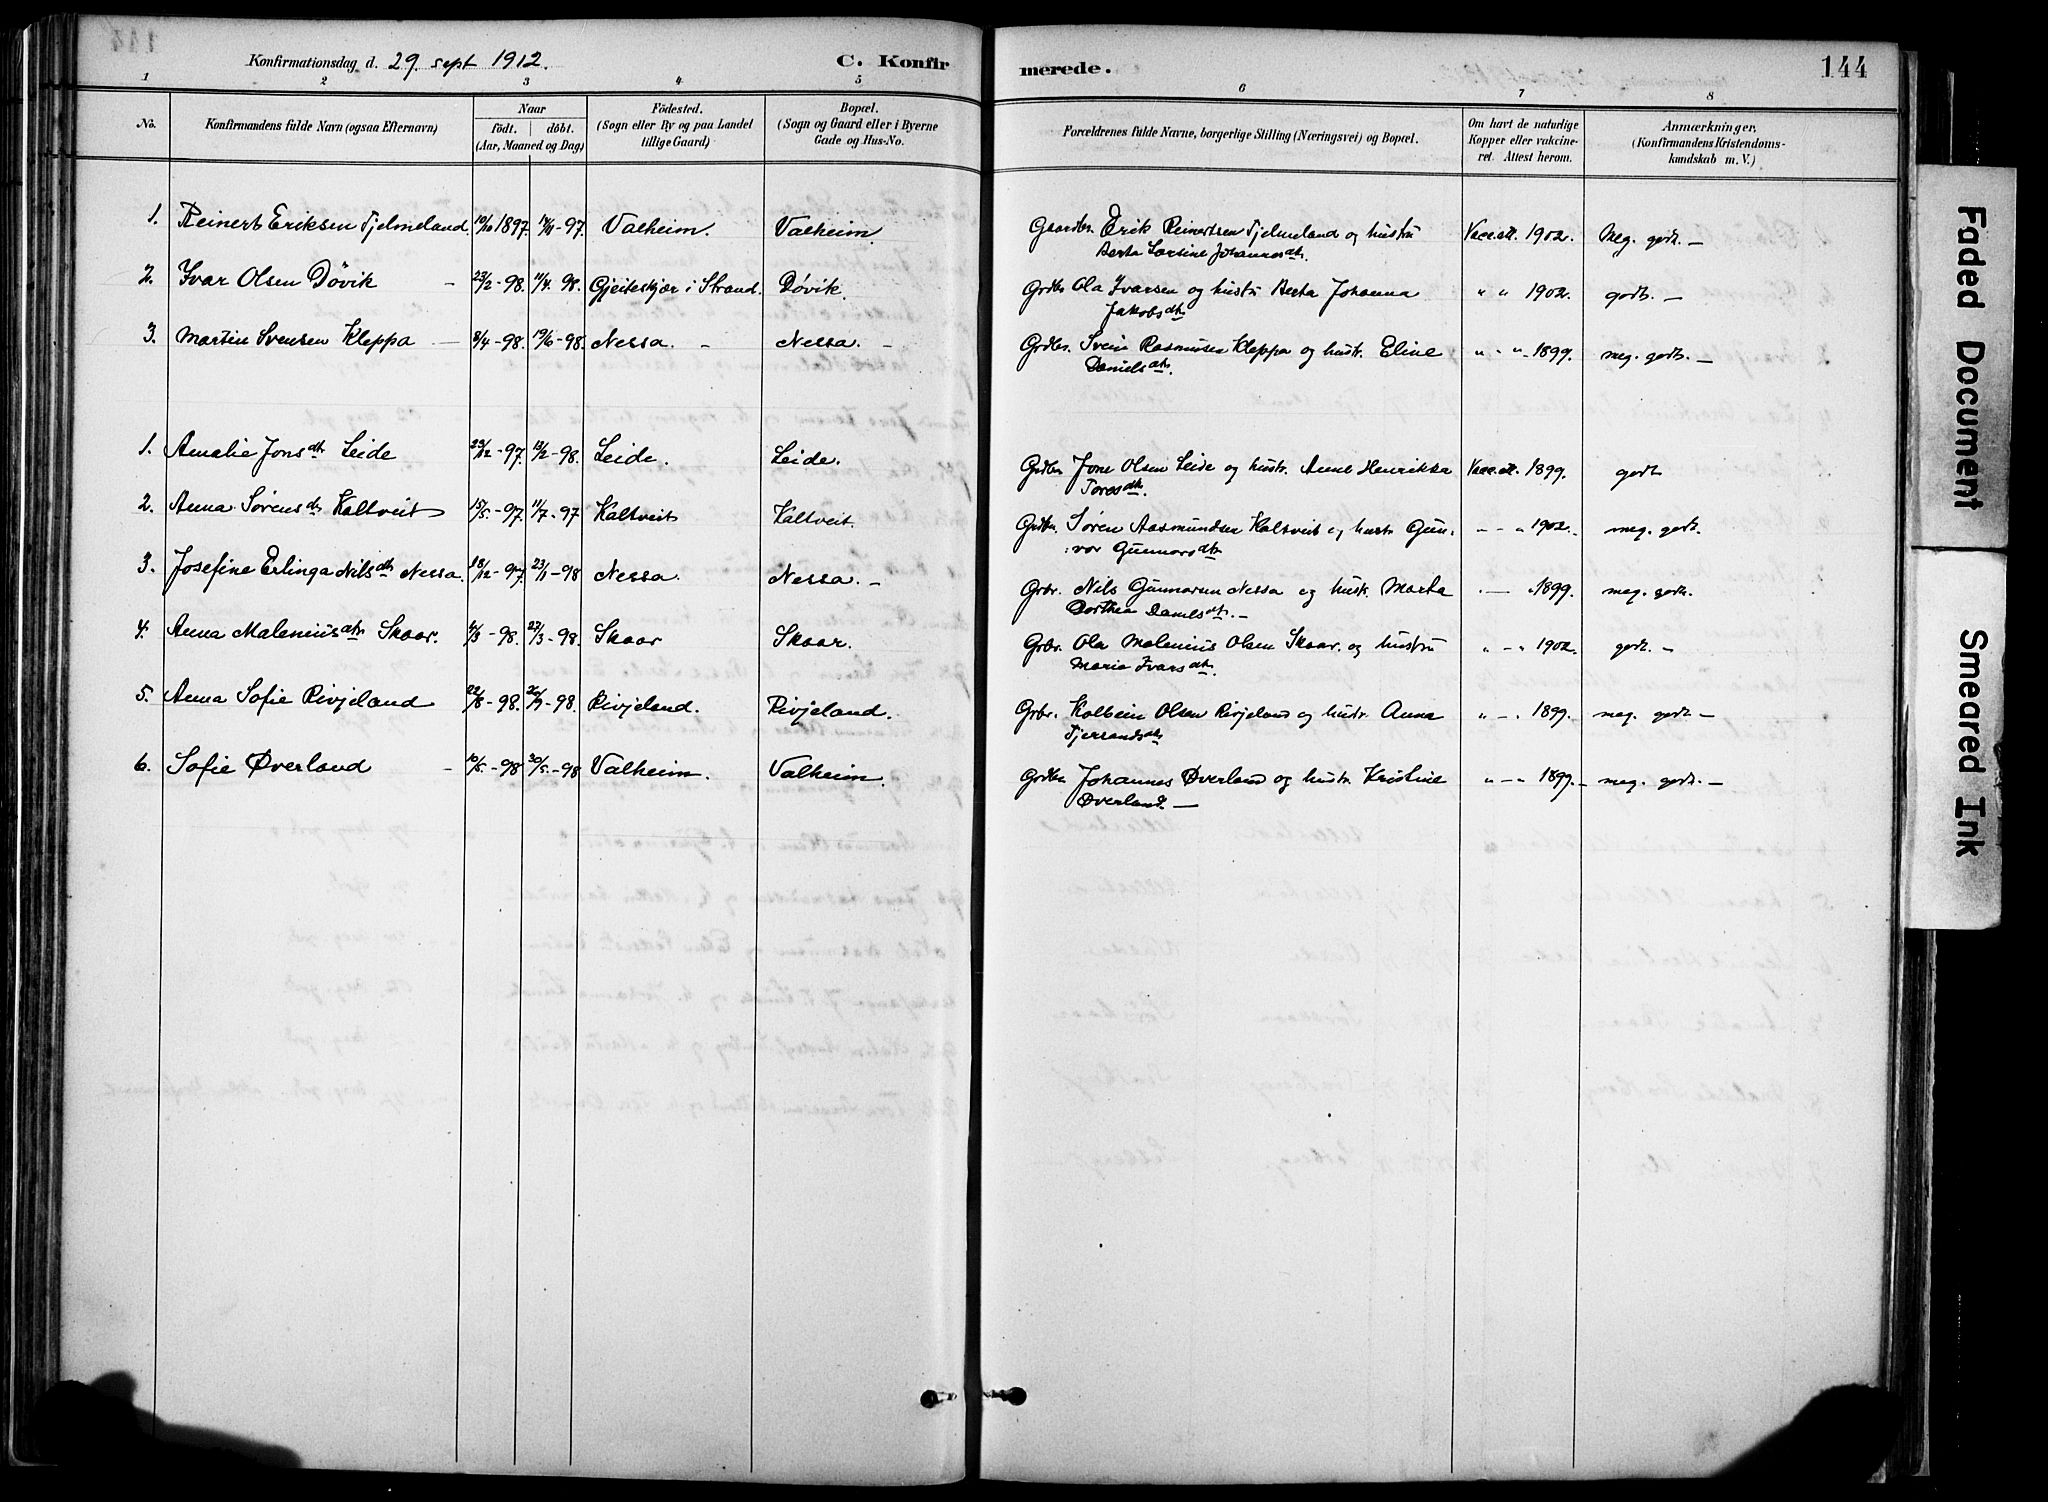 Konfirmationsdag d. 29. sept 1912.
C. Konfirmerede.
144
1 2 3 4 5 6 7 8
No.
Konfirmandens fulde Navn (ogsaa Efternavn)
Naar
födt. döbt.
(Aar, Maaned og Dag)
Födested.
(Sogn eller By og paa Landet
tillige Gaard)
Bopæl.
(Sogn og Gaard eller i Byerne
Gade og Hus-No.
Forældrenes fulde Navne, borgerlige Stilling (Næringsvei) og Bopæl.
Om havt de naturlige
Kopper eller vakcine-
ret. Attest herom.
Anmærkninger.
(Konfirmandens Kristendoms-
kundskab m. V.)
1. Reinert Eriksen Tjelmeland 10/10 1897. 14/11-97. Valheim. Valheim. Gaardbr. Erik Reinertsen Tjelmeland og hustru Vacc.att. 1902. Meg. godt. —
Berta Sørine Johannesdtr.
2. Ivar Olsen Døvik 23/2-98. 11/4. 98. Gjeiteskjær i Strand. Døvik. Grdbr. Ola Ivarsen og hustr. Berta Johanna " " 1902. godt. —
Jakobsdtr.
3. Martin Svensen Kleppa 8/4-98. 19/6-98. Nessa. Nessa. Grdbr. Svein Rasmusen Kleppa og hustr. Eline " - " 1899. meg. godt. —
Danielsdtr.
1. Amalie Jonsdtr. Leide 23/12-97. 13/2-98. Leide. Leide. Grdbr. Jone Olsen Leide og hustr. Anne Henrikka Vacc.att. 1899. godt
Toresdtr.
2. Anna Sørensdtr Kaltveit 15/5-97. 11/7-97 Kaltveit Kaltveit. Grdbr. Søren Aasmundsen Kaltveit og hustr. Gun-
vor Gunnarsdtr. - - " 1902. meg. godt.
3. Josefine Erlinga Nilsdtr. Nessa. 18/12-97. 23/1-98 Nessa. Nessa. — Grbr. Nils Gunnarsen Nessa og hustr. Marta " — " 1899. meg. godt.
Dorthea Danielsdtr. —
4. Anna Maleniusdtr. Skaar. 4/3-98. 27/3-98. Skaar Skaar. Grbr. Ola Malenius Olsen Skaar. og hustru " - " 1902. godt. -
Maria Ivarsdtr.
5. Anna Sofie Rivjeland 22/6-98. -98. Rivjeland. Rivjeland. Grbr. Kolbein Olsen Rivjeland og hustr. Anna " - " 1899. meg. godt —
Tjerandsdtr.
6. Sofie Øverland 10/5.-98 30/5.-98 Valheim. Valheim. Grdbr. Johannes Øverland og hustr. Kristine " - " 1899. - meg. godt. —
Øverland. —
Faded Document
Smeared Ink